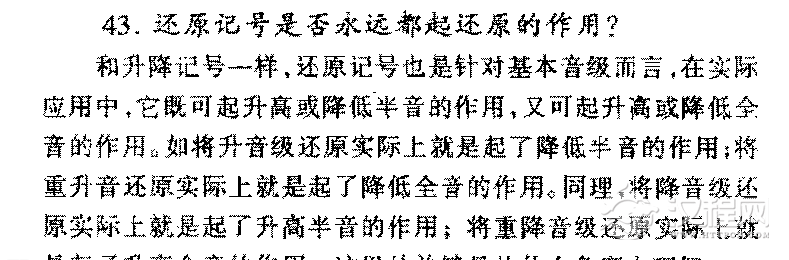 43. 还原记号是否永远都起还原的作用?
和升降记号一样,还原记号也是针对基本音级而言,在实际
应用中,它既可起升高或降低半音的作用,又可起升高或降低全
音的作用。如将升音级还原实际上就是起了降低半音的作用;将
重升音还原实际上就是起了降低全音的作用。同理,将降音级还
原实际上就是起了升高半音的作用; 将重降音级还原实际上就